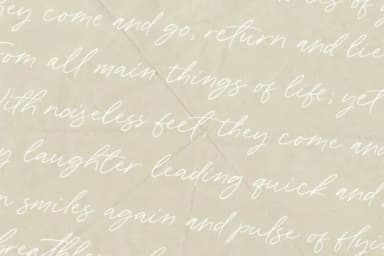 hey come and go, return and lie
rom all main things of life, yet
With noiseless feet they come and
y laughter leading quick and
n smiles again and pulse of flyi
breathle